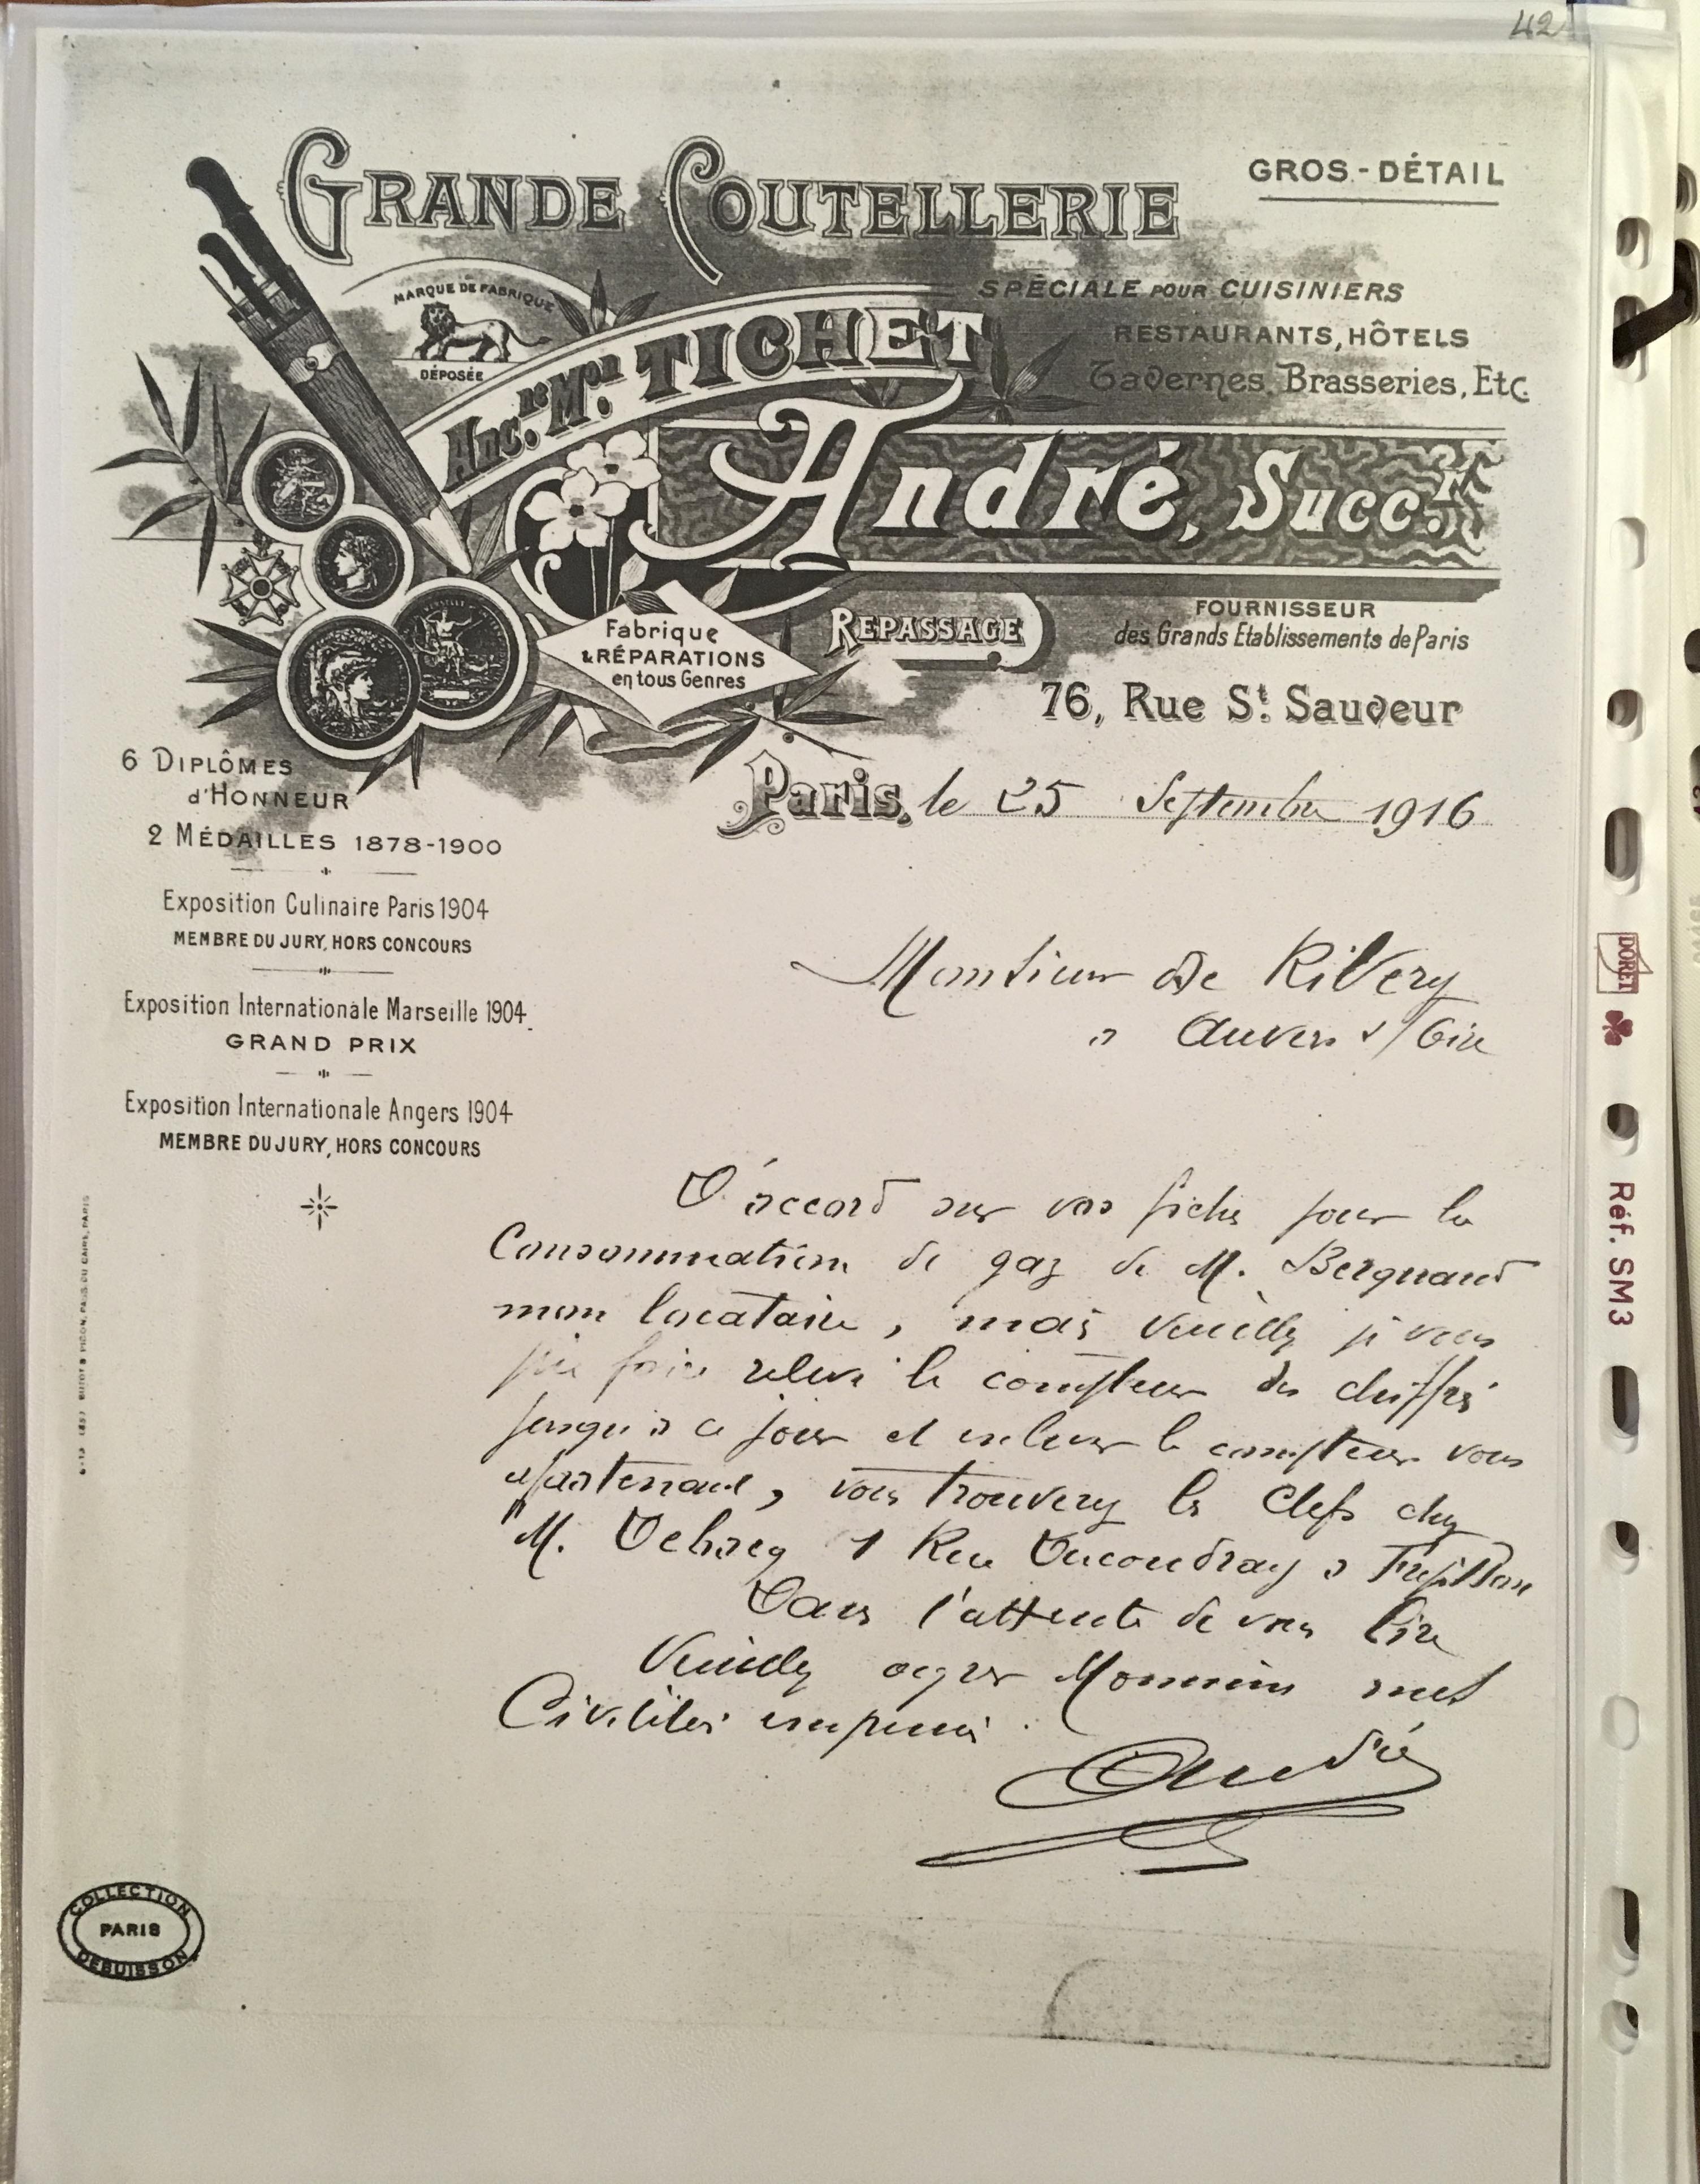 42
GRANDE COUTELLERIE
GROS-DÉTAIL
MARQUE DE FABRIQUE
DÉPOSÉE
Anc.ne Mon. TICHET
SPÉCIALE POUR CUISINIERS
RESTAURANTS, HÔTELS
Tavernes, Brasseries, Etc.
André, Succ.r
Fabrique
& RÉPARATIONS
en tous Genres
REPASSAGE
FOURNISSEUR
des Grands Etablissements de Paris
76, Rue St. Sauveur
6 DIPLÔMES
d'HONNEUR
2 MÉDAILLES 1878-1900
Exposition Culinaire Paris 1904
MEMBRE DU JURY, HORS CONCOURS
Exposition Internationale Marseille 1904.
GRAND PRIX
Exposition Internationale Angers 1904
MEMBRE DU JURY, HORS CONCOURS
Paris, le 25 Septembre 1916
Monsieur De Rivery
à Auvers s/ Oise
D'accord sur vos fiches pour la
Consommation de gaz de M. Bergnaud
mon locataire, mais veuillez je vous
prie faire relever le compteur des chiffres
jusqu'à ce jour et enlever le compteur vous
appartenant, vous trouverez les Clefs chez
M. 1 Rue Ducoudray à Frépillon
Dans l'attente de vous lire
Veuillez agréer Monsieur mes
Civilités empressées.
André
COLLECTION
PARIS
DEBUISSON
DORET
Réf. SM3